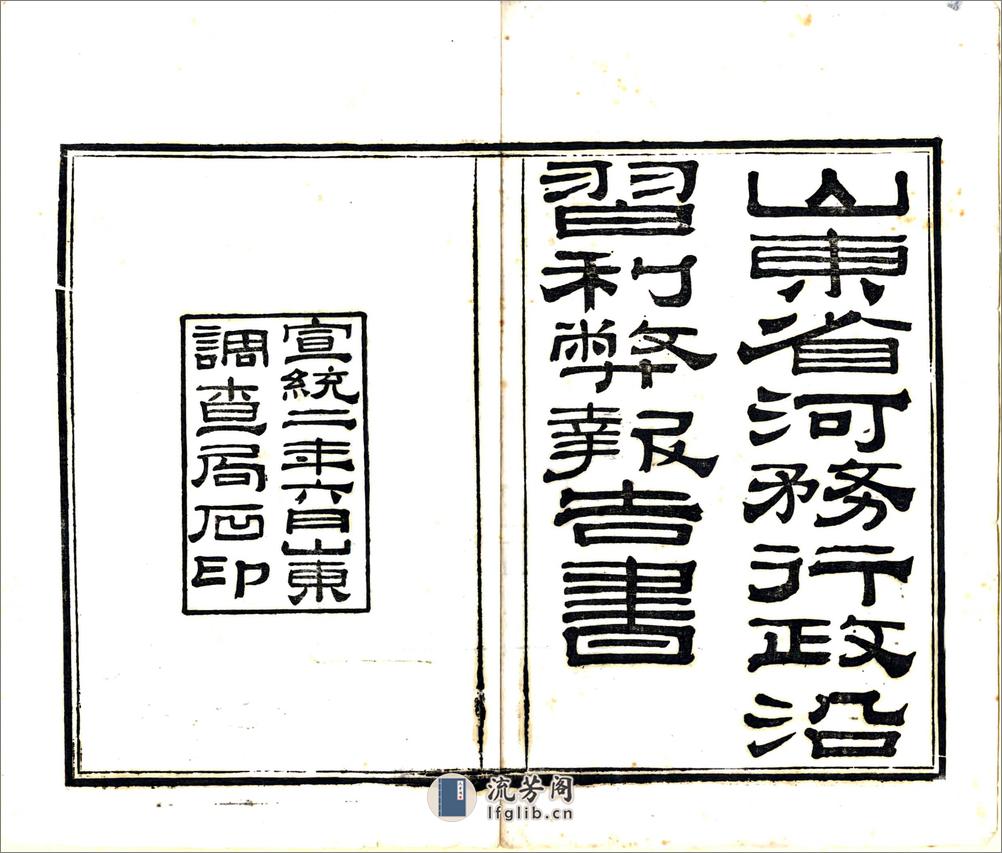 山東省河務行政沿
習利弊報告書
宣統二年六月山東
調查局石印
流芳阁
lfglib.cn